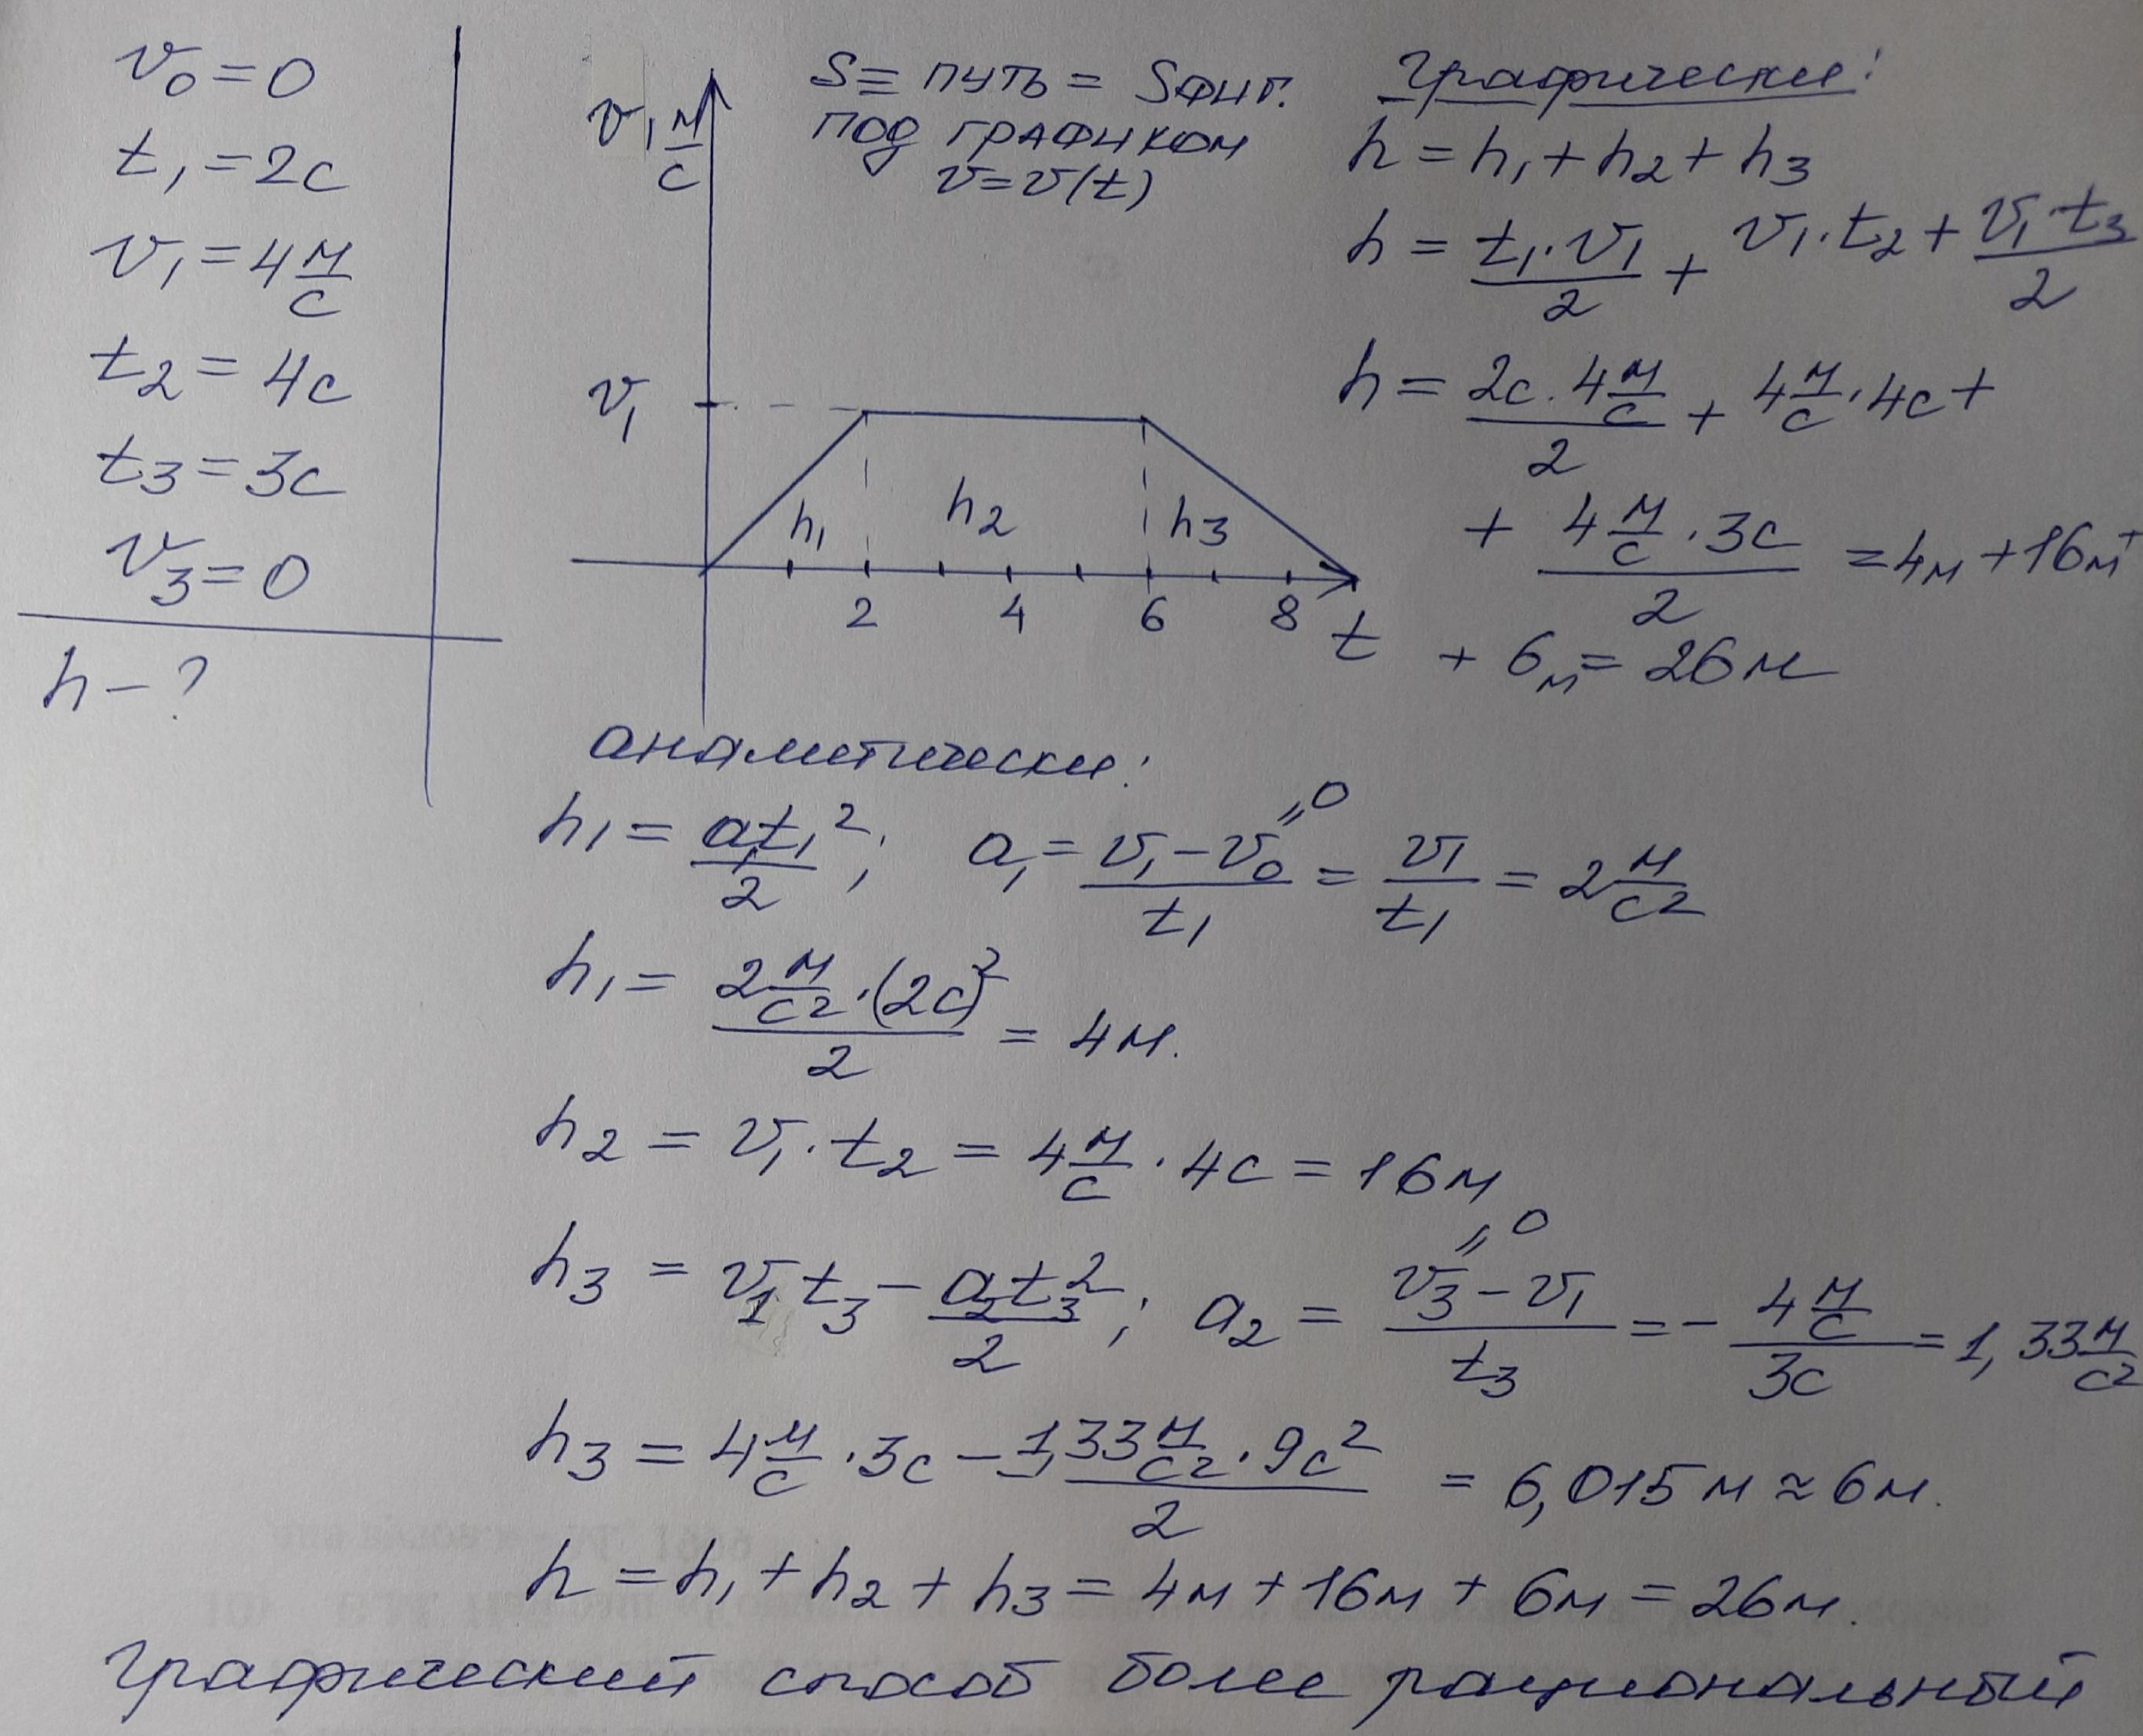 v₀ = 0
t₁ = 2с
v₁ = 4 м/с
t₂ = 4с
t₃ = 3с
v₃ = 0
h – ?
v, м/с
S ≡ путь = Sфиг.
под графиком
v = v(t)
v₁
h₁ h₂ h₃
2 4 6 8 t
Графически:
h = h₁ + h₂ + h₃
h = t₁·v₁/2 + v₁·t₂ + v₁·t₃/2
h = 2с·4 м/с/2 + 4 м/с·4с +
+ 4 м/с·3с/2 = 4м + 16м +
+ 6м = 26м
аналитически:
h₁ = a₁t₁²/2; a₁ = (v₁ – v₀)/t₁ = v₁/t₁ = 2 м/с²
"0
h₁ = 2 м/с²·(2с)²/2 = 4м.
h₂ = v₁·t₂ = 4 м/с·4с = 16м
h₃ = v₁t₃ – a₂t₃²/2; a₂ = (v₃ – v₁)/t₃ = – 4 м/с/3с = 1,33 м/с²
"0
h₃ = 4 м/с·3с – 1,33 м/с²·9с²/2 = 6,015м ≈ 6м.
h = h₁ + h₂ + h₃ = 4м + 16м + 6м = 26м.
Графический способ более рациональный